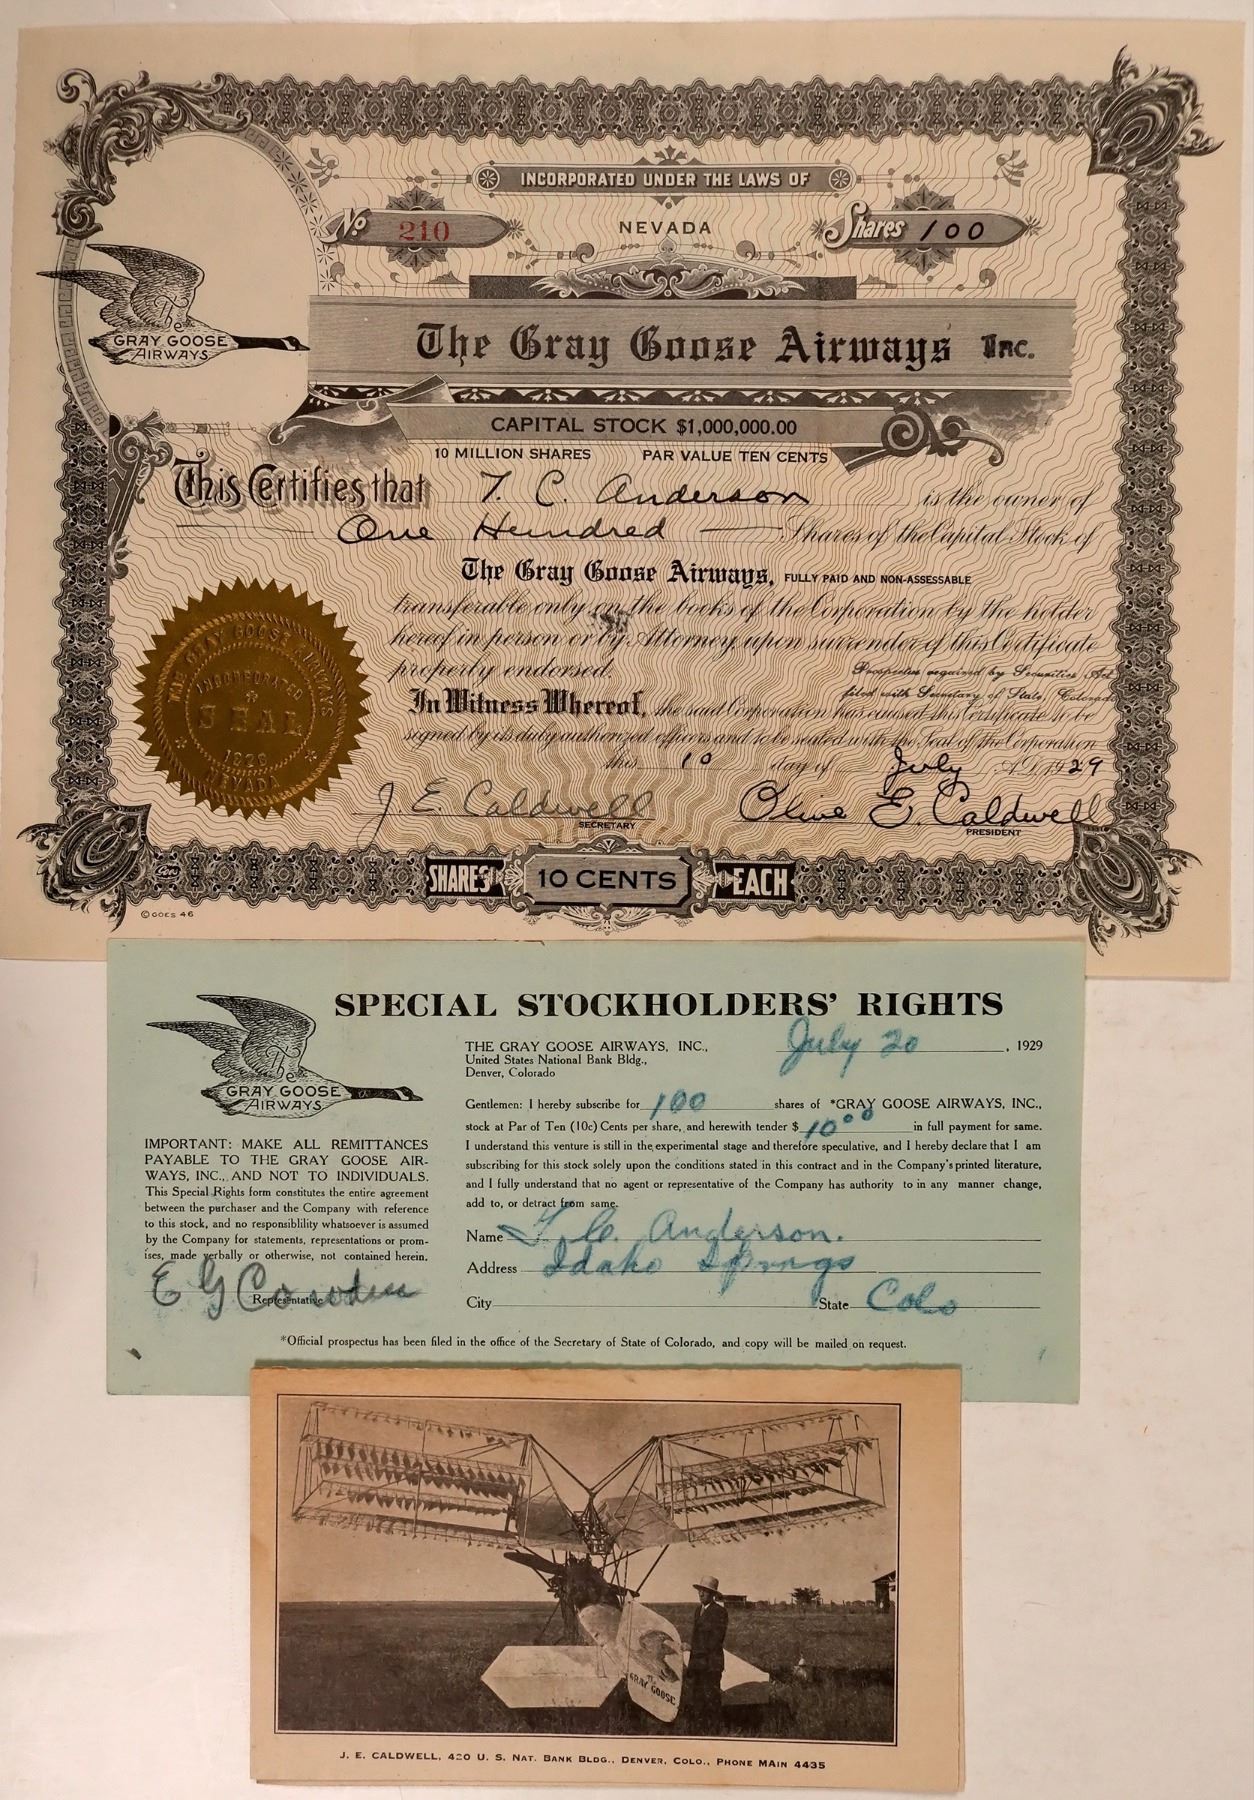 INCORPORATED UNDER THE LAWS OF
No 210
NEVADA
Shares 100
The
GRAY GOOSE
AIRWAYS
The Gray Goose Airways Inc.
CAPITAL STOCK $1,000,000.00
10 MILLION SHARES PAR VALUE TEN CENTS
This Certifies that T. C. Anderson is the owner of
One Hundred Shares of the Capital Stock of
The Gray Goose Airways, FULLY PAID AND NON-ASSESSABLE
transferable only on the books of the Corporation by the holder
hereof in person or by Attorney upon surrender of this Certificate
properly endorsed.
Prospectus required by Securities Act
filed with Secretary of State, Colorado
In Witness Whereof, the said Corporation has caused this Certificate to be
signed by its duly authorized officers and to be sealed with the Seal of the Corporation
this 10 day of July A.D. 1929
THE GRAY GOOSE AIRWAYS
INCORPORATED
SEAL
1928
NEVADA
J. E. Caldwell
SECRETARY
Olive E. Caldwell
PRESIDENT
SHARES 10 CENTS EACH
Goes
© GOES 46
SPECIAL STOCKHOLDERS' RIGHTS
The
GRAY GOOSE
AIRWAYS
THE GRAY GOOSE AIRWAYS, INC., July 20, 1929
United States National Bank Bldg.,
Denver, Colorado
Gentlemen: I hereby subscribe for 100 shares of *GRAY GOOSE AIRWAYS, INC.,
stock at Par of Ten (10c) Cents per share, and herewith tender $ 10 00 in full payment for same.
I understand this venture is still in the experimental stage and therefore speculative, and I hereby declare that I am
subscribing for this stock solely upon the conditions stated in this contract and in the Company's printed literature,
and I fully understand that no agent or representative of the Company has authority to in any manner change,
add to, or detract from same.
Name T. C. Anderson.
Address Idaho Springs
City State Colo
IMPORTANT: MAKE ALL REMITTANCES
PAYABLE TO THE GRAY GOOSE AIR-
WAYS, INC., AND NOT TO INDIVIDUALS.
This Special Rights form constitutes the entire agreement
between the purchaser and the Company with reference
to this stock, and no responsiblility whatsoever is assumed
by the Company for statements, representations or prom-
ises, made verbally or otherwise, not contained herein.
E G
Representative
*Official prospectus has been filed in the office of the Secretary of State of Colorado, and copy will be mailed on request.
The
GRAY GOOSE
J. E. CALDWELL, 420 U. S. NAT. BANK BLDG., DENVER, COLO., PHONE MAIN 4435